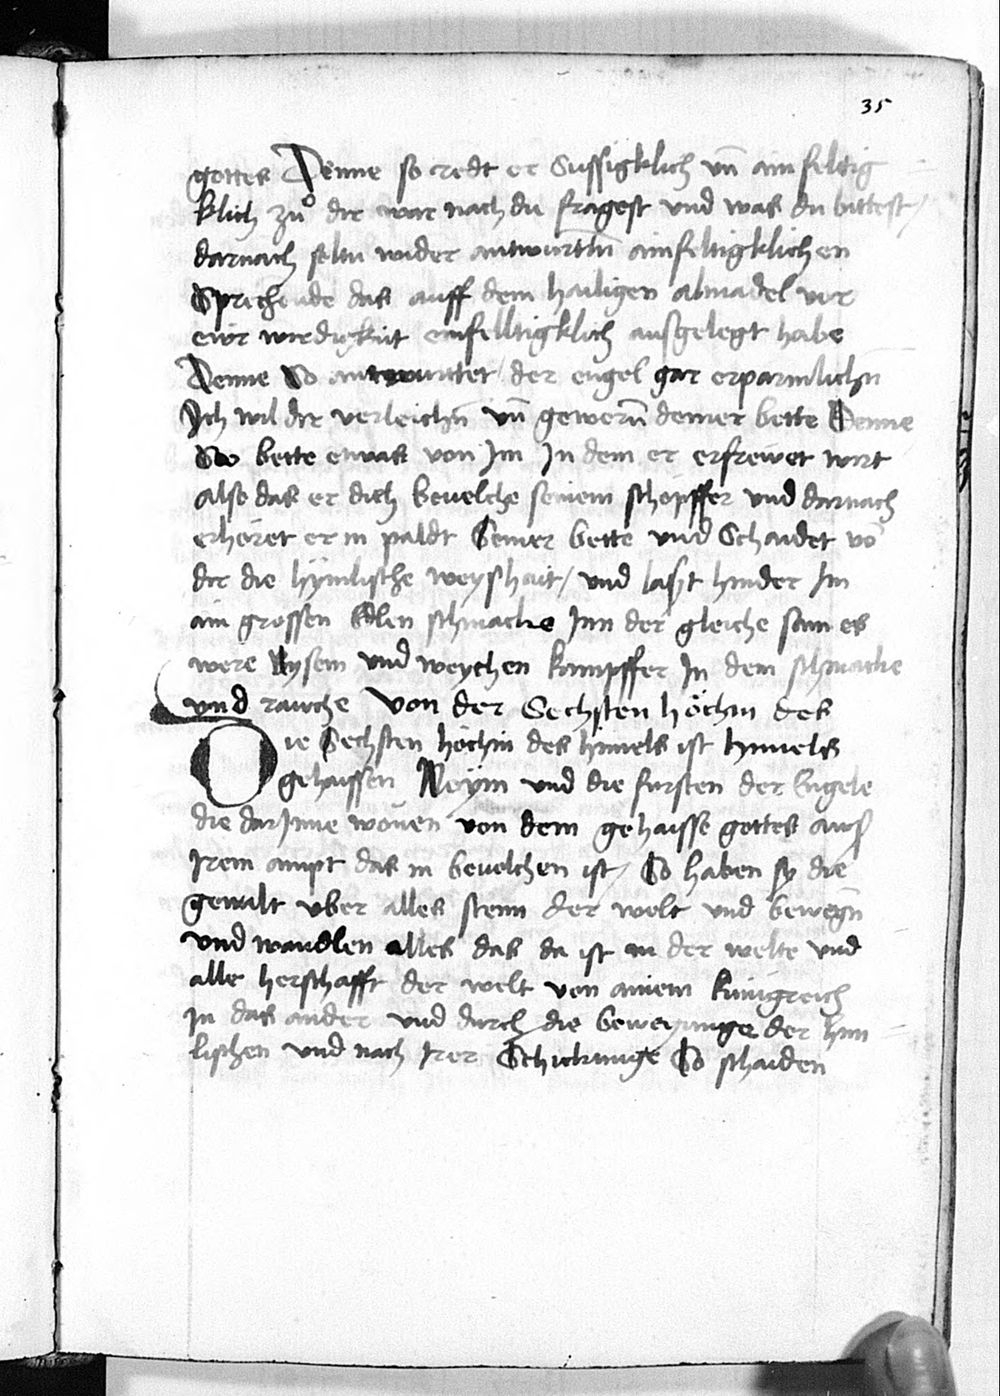 35
gottes Denne so redt er Sussigklich vn̄ ainfeltig
klich zuͦ dir war nach du fragest und was du bittest /
darnach soltu wider antwurttn̄ ainfeltigklichen
Sprechende das auff dem hailigen almadel vor
ewr wirdigkait einfelltigklich ausgelegt habe
Denne So antwurttet / der engel gar erparmlichn̄
Ich wil dir verleichn̄ vn̄ gewern̄ deiner bette Denne
So bette etwas von Im In dem er erfrewet wirt
also das er dich beuelche seinem schopffer und darnach
erhöret er in paldt Seiner bette und Schaidet vō
dir die hymlische weyshait / und lasst hinder Im
ain grossen Edlen schmacke Inn der gleiche sam es
were Bysem und weychen kampffer In dem schmacke
und rauche Von der Sechsten höchin des
Die Sechsten höchin des himels ist himels
gehaissen und die fursten der Engele
die darInne wonen von dem gehaisse gottes aus
Irem ampt das in beuelchen ist / So haben sy die
gewalt uber alles stenn der welt und bewegn̄
und wandlen alles das da ist in der welte und
alle herschafft der welt von ainem kunigreich
In das ander und durch die bewegunge der him
lischen und nach Irer Schickunge So schaiden